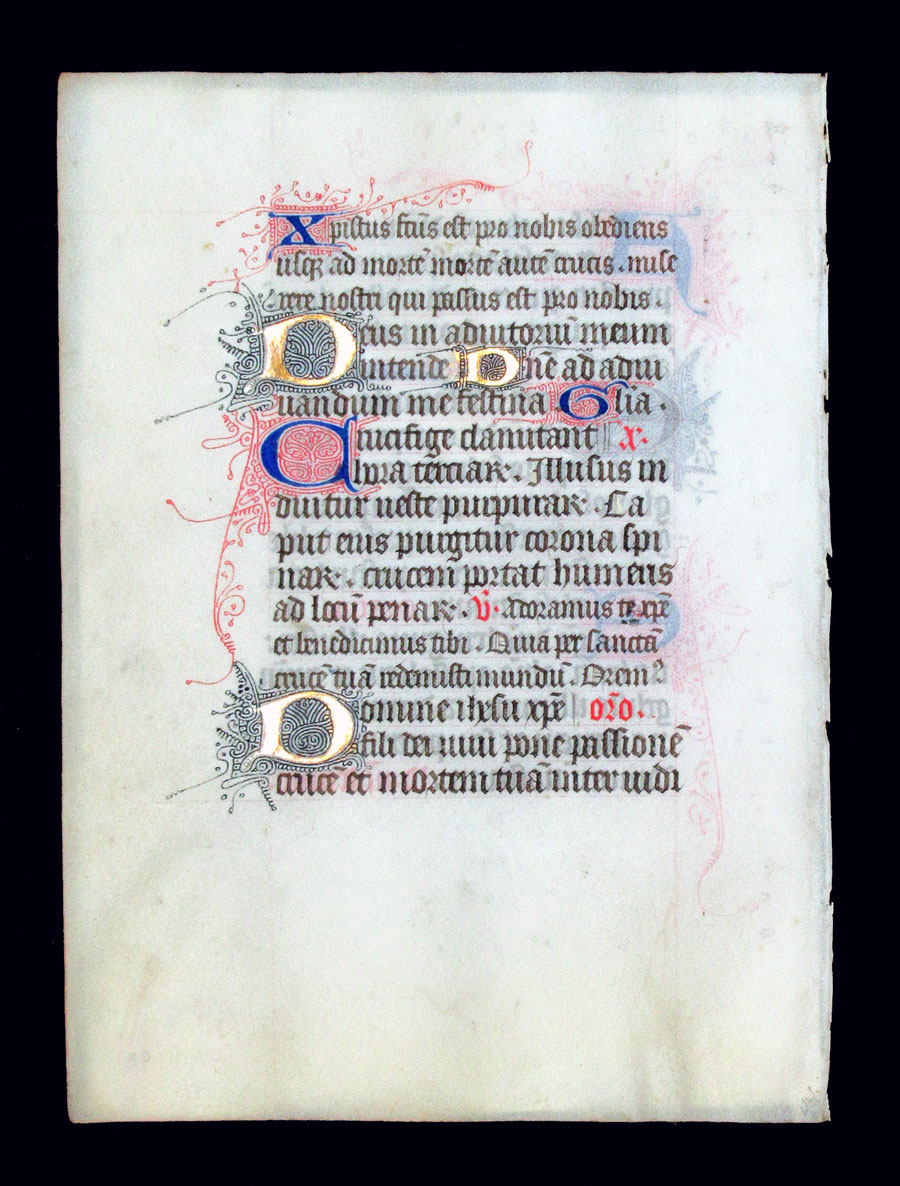 Xpistus fcūs est pro nobis obediens
usqꝫ ad mortē mortē autē crucis. mise
rere nostri qui passus est pro nobis.
Deus in adiutoriū meum
intende Dn̄e ad adiu
uandum me festina Glia.
Crucifige clamitant x.
hora terciar. Illusus in
duitur ueste purpurar. Ca
put eius pungitur corona spi
nar. crucem portat humeris
ad locū penar. v̄. Adoramus te xp̄e
et benedicimus tibi. Quia per sanctā
crucē tuā redemisti mundū. Orem9
Domine ihxsu xp̄e or̄o.
fili dei uiui pone passionē
crucē et mortem tuā inter iudi